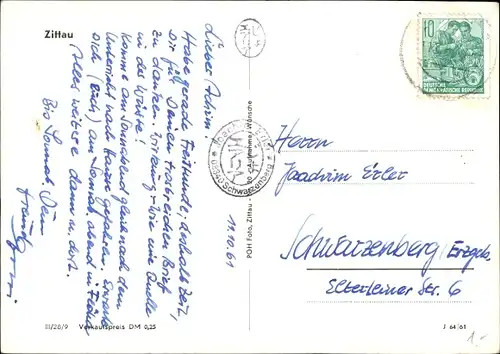 Zittau
19.10.61
Lieber Achim!
Habe gerade Freistunde, deshalb Zeit,
Dir für Deinen trostreichen Brief
zu danken. wie eine Quelle
in der Wüste!
Komme am Sonnabend gleich nach dem
Unterricht nach Hause gefahren. Erwarte
Dich (Euch) am Sonnabend abend in
Alles weitere dann u. dort.
Bis Sonnab. Dein
III/26/9 Verkaufspreis DM 0,25
PGH Foto, Zittau
Aufnahme: Wünsche
Schwarzenberg
10
DEUTSCHE
DEMOKRATISCHE REPUBLIK
Herrn
Joachim Erler
Schwarzenberg/Erzgeb.
Elterleiner Str. 6
J 64/61
1.-